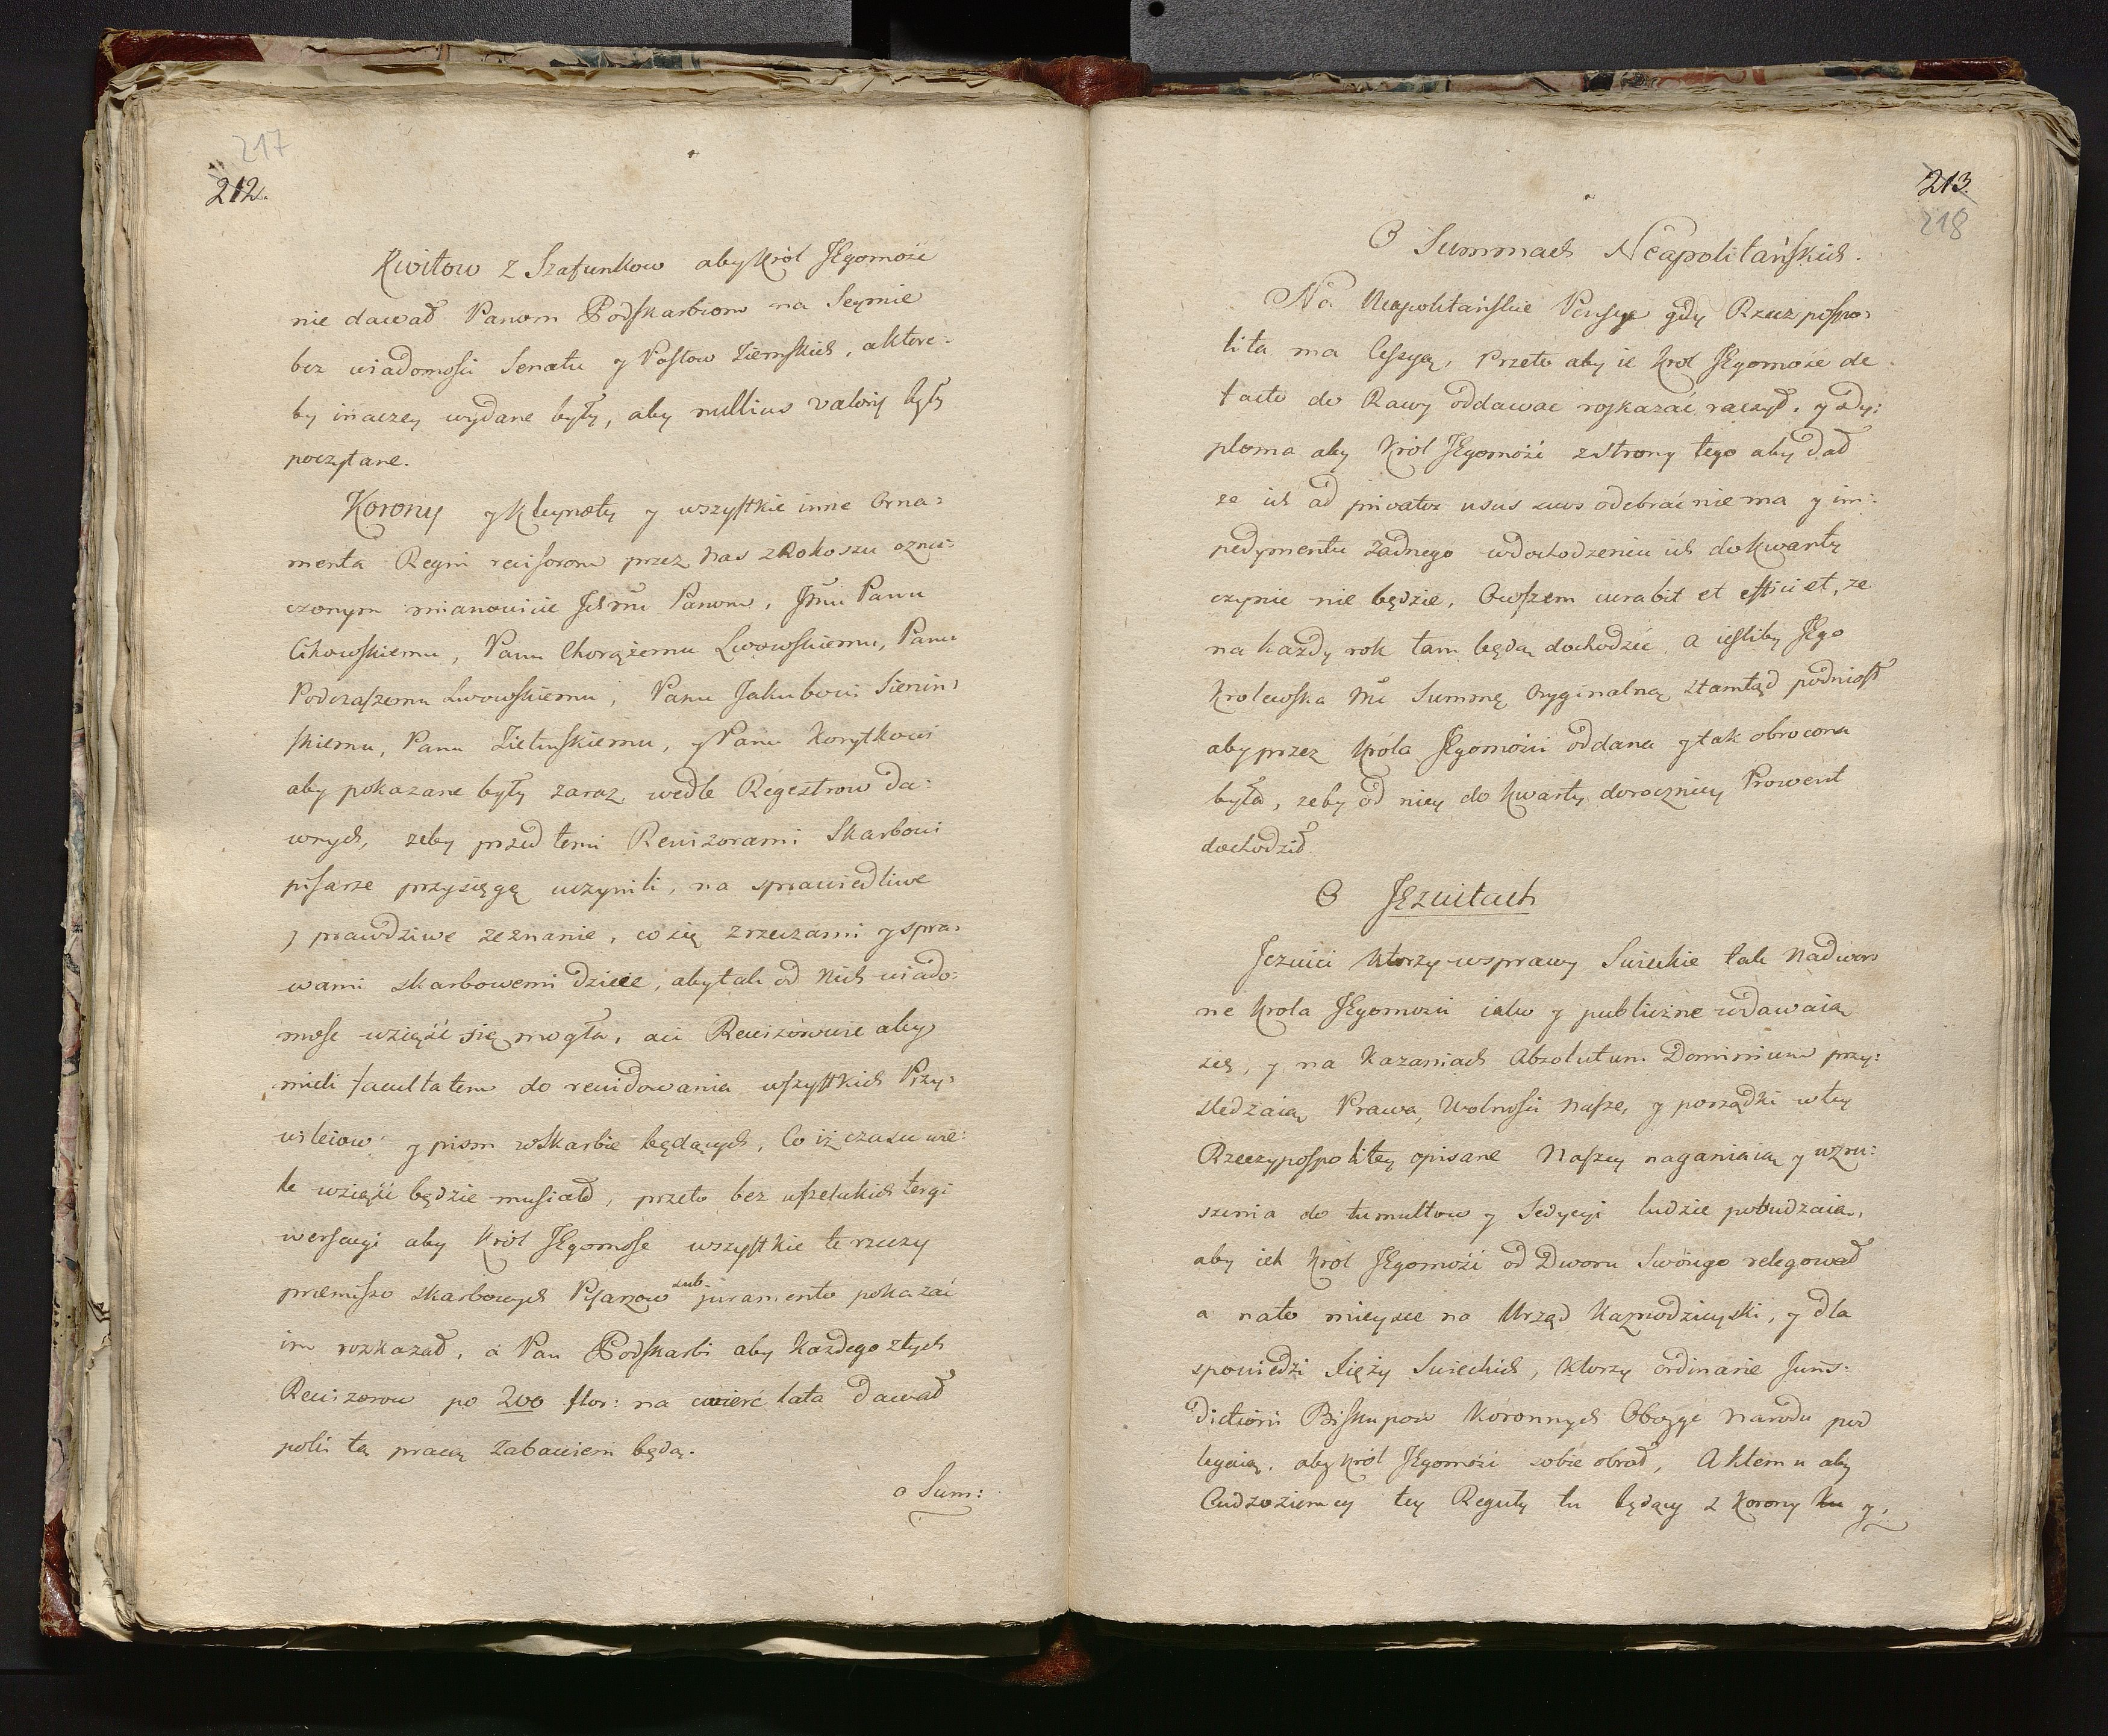 217
212.
Kwitow z Szafunkow aby Król JEgomośc
nie dawał Panom Podskarbiom na Seymie
bez wiadomosci Senatu y Posłow Ziemskich, a ktore-
by inaczey wydane były, aby nullius valoris były
poczytane.
Korony y Kleynoty y wszystkie inne Orna=
menta Regni revisorom przez nas z Rokoszu ozna=
czonym mianowicie Jchmci Panom, Jmci Panu
Cikowskiemu, Panu Chorążemu Lwowskiemu, Panu
Podczaszemu Lwowskiemu, Panu Jakubowi Sienin=
skiemu, Panu Zielinskiemu, y Panu Korytkowi
aby pokazane były zaraz wedle Regestrow da=
wnych, zeby przed temi Rewizorami Skarbowi
pisarze przysięgę uczynili, na sprawiedliwe
y prawdziwe zeznanie, co się z rzeczami y spra=
wami skarbowemi dzieie, aby tak od nich wiado=
mośc wziąść się mogła, aci Rewizorowie aby
mieli facultatem do rewidowania wszystkich Przy=
wileiow y pism w skarbie będących, Co iż czasu wie=
le wziąść będzie musiało, przeto bez wszelakich tergi
wersacyi aby Król JEgomośc wszystkie te rzeczy
præmisso skarbowych Pisarzow sub juramento pokazać
im rozkazał, a Pan Podskarbi aby każdego z tych
Rewizorow po 200 flor: na cwierć lata dawał
poki tą pracą zabawieni będą.
o Sum:
213.
218
O Summach Neapolitańskich.
Na Neapolitańskie Pensye gdy Rzecz pospo=
lita ma Cessyą, Przeto aby ie Krol JEgomośc de
facto do Rawy oddawac roskazać raczył. y Dy=
ploma aby Król JEgomość z strony tego aby dał
ze ich ad privatos usus suos odebrać nie ma y im=
pedymentu żadnego w dochodzeniu ich do Kwarty
czynic nie będzie. Owszem curabit et efficiet, ze
na każdy rok tam będą dochodzić, a iesliby Jego
Krolewska Mć Summę Oryginalną ztamtąd podniosł
aby przez Króla JEgomości oddana y tak obrocona
była, zeby od niey do Kwarty doroczniey Prowent
dochodził.
O JEzuitach
Jezuici ktorzy w sprawy Swieckie tak nadwor=
ne Krola JEgomosci iako y publiczne wdawaią
się, y na Kazaniach Absolutum Dominium przy=
sledzaią Prawa, Wolnosci nasze, y porządki w tey
Rzeczypospolitey opisane Naszey naganiaią y wzru=
szenia do tumultow y Sedycyi ludzie pobudzaią,
aby ich Król JEgomość od Dworu Swóiego relegował
a na to mieysce na Urząd Kaznodzieyski, y dla
spowiedzi Xięży Swieckich, ktorzy ordinarie Juris=
dictioni Biskupow Koronnych Oboyga narodu pod
legaią, aby Król JEgomośći sobie obrał, A k temu aby
Cudzoziemcy tey Reguły tu będący z Korony y.